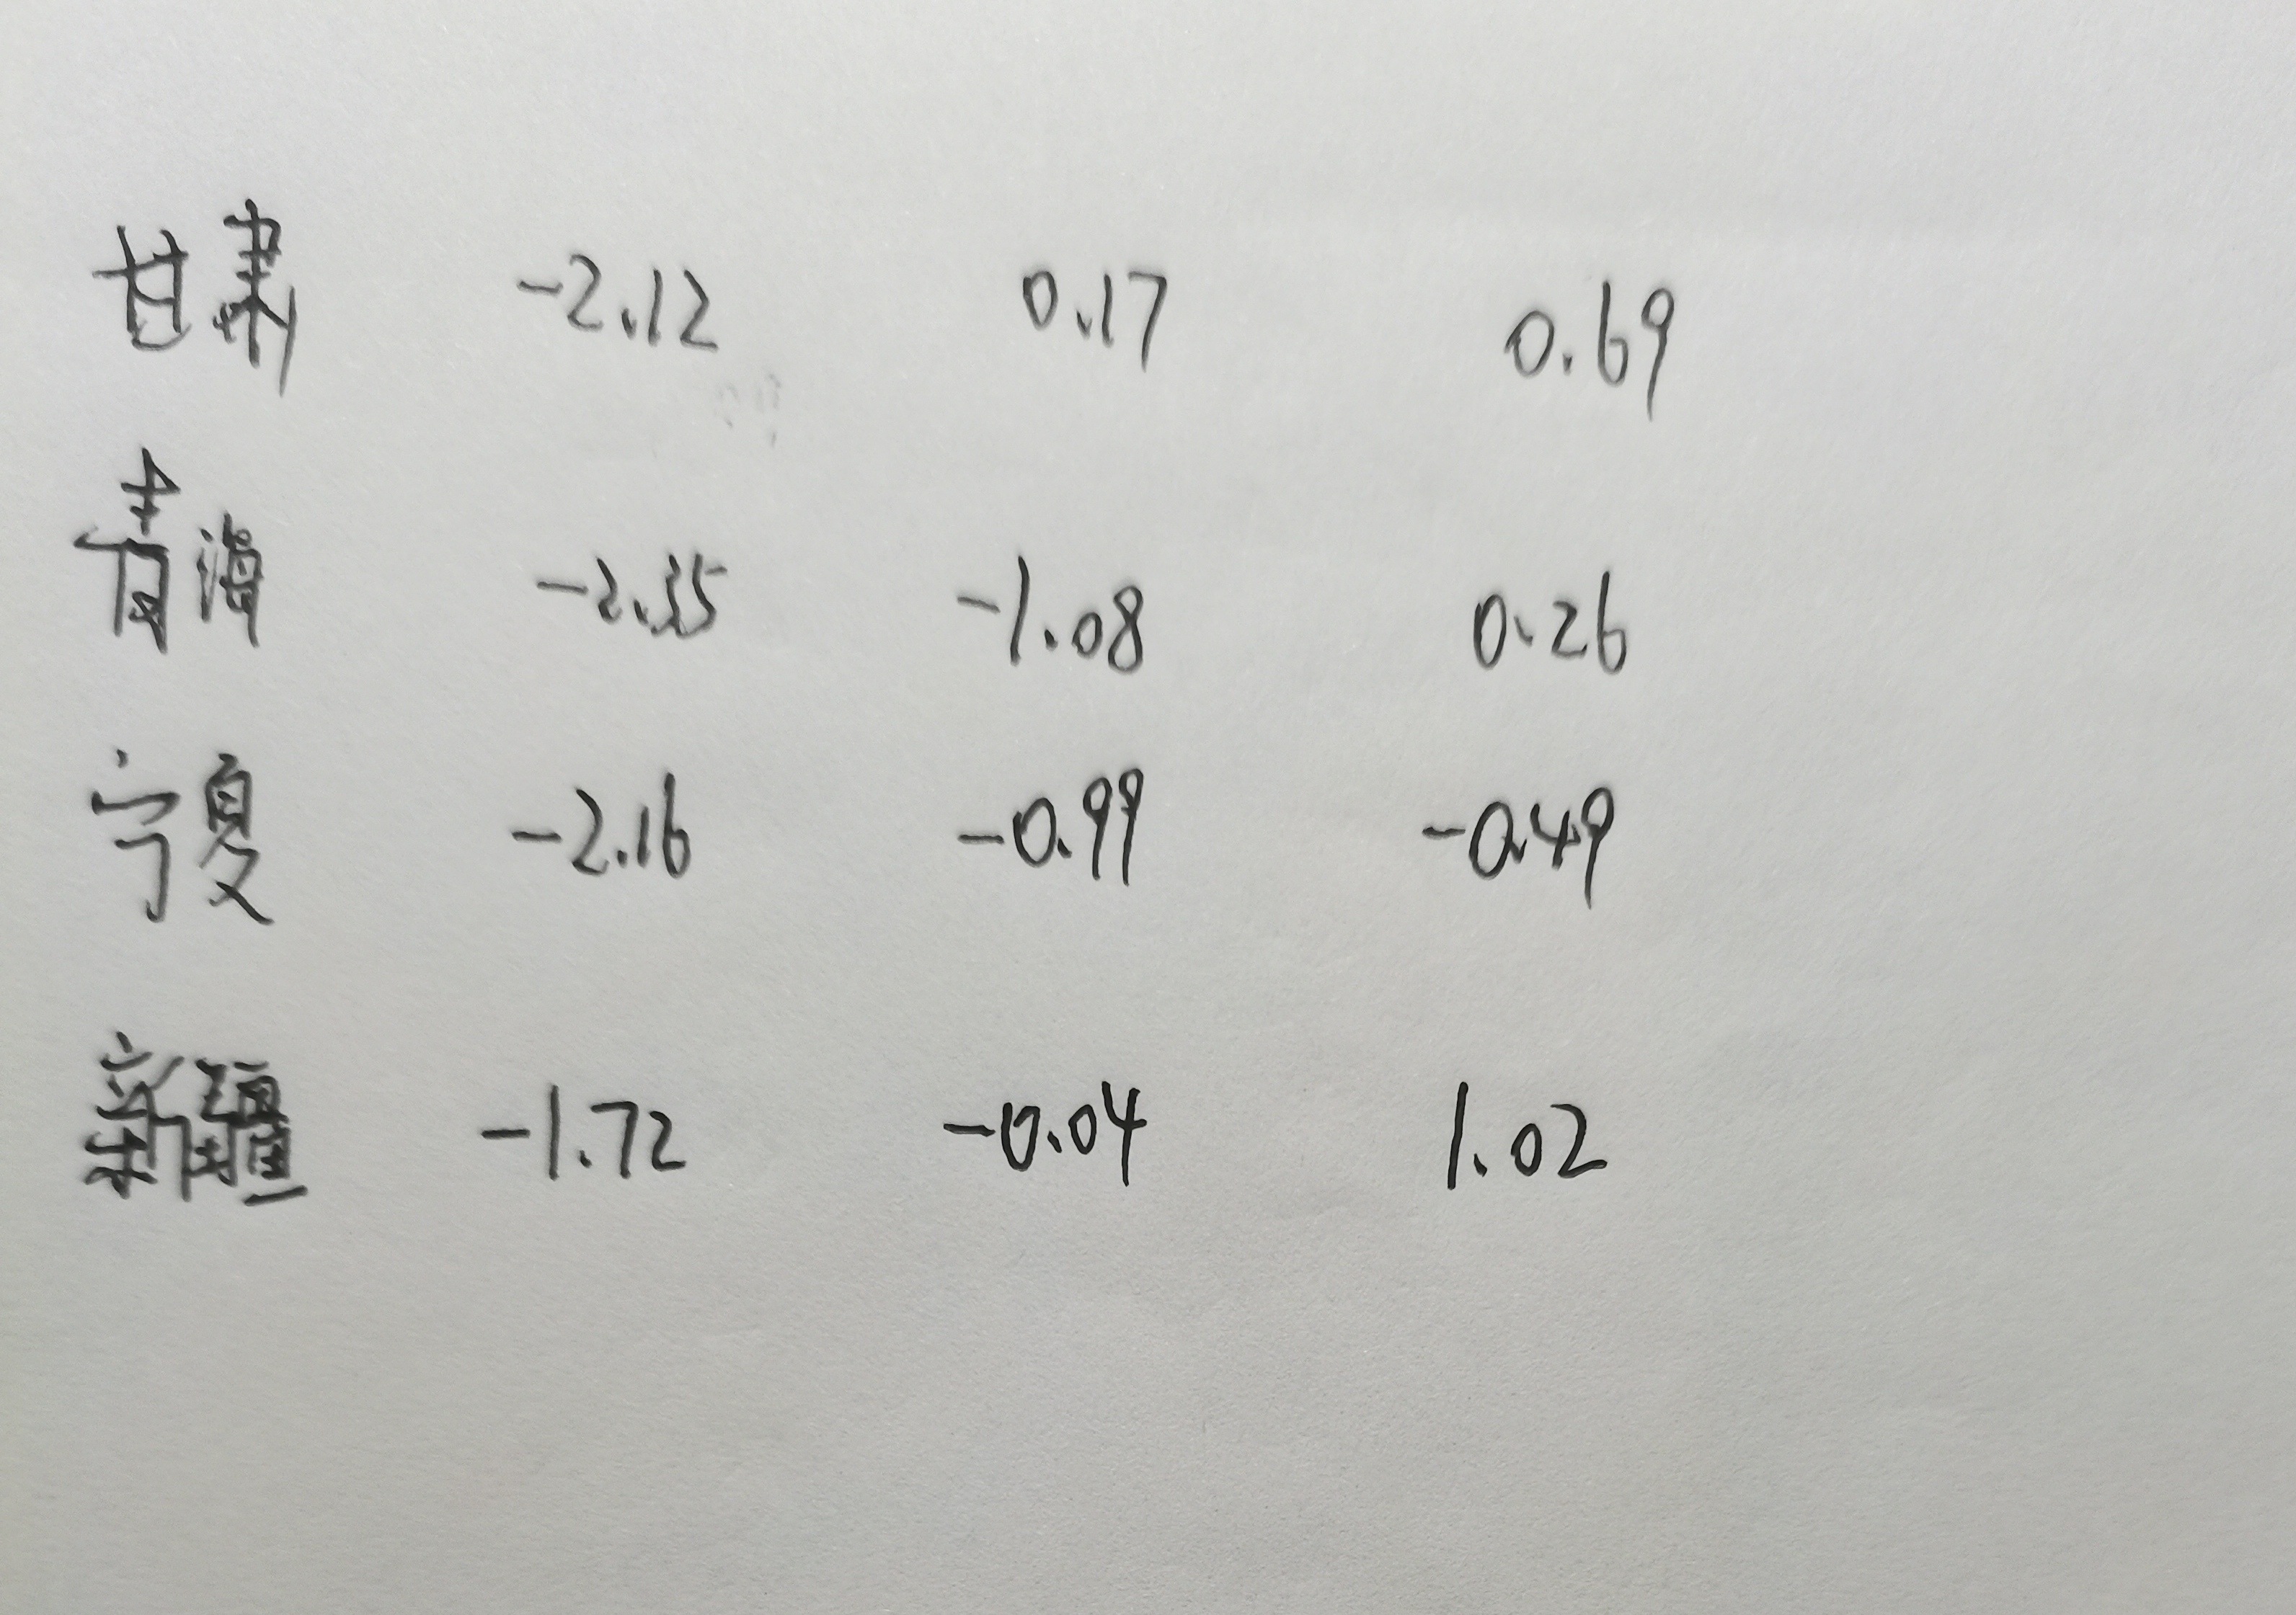 甘肃 -2.12 0.17 0.69
青海 -2.35 -1.08 0.26
宁夏 -2.16 -0.99 -0.49
新疆 -1.72 -0.04 1.02